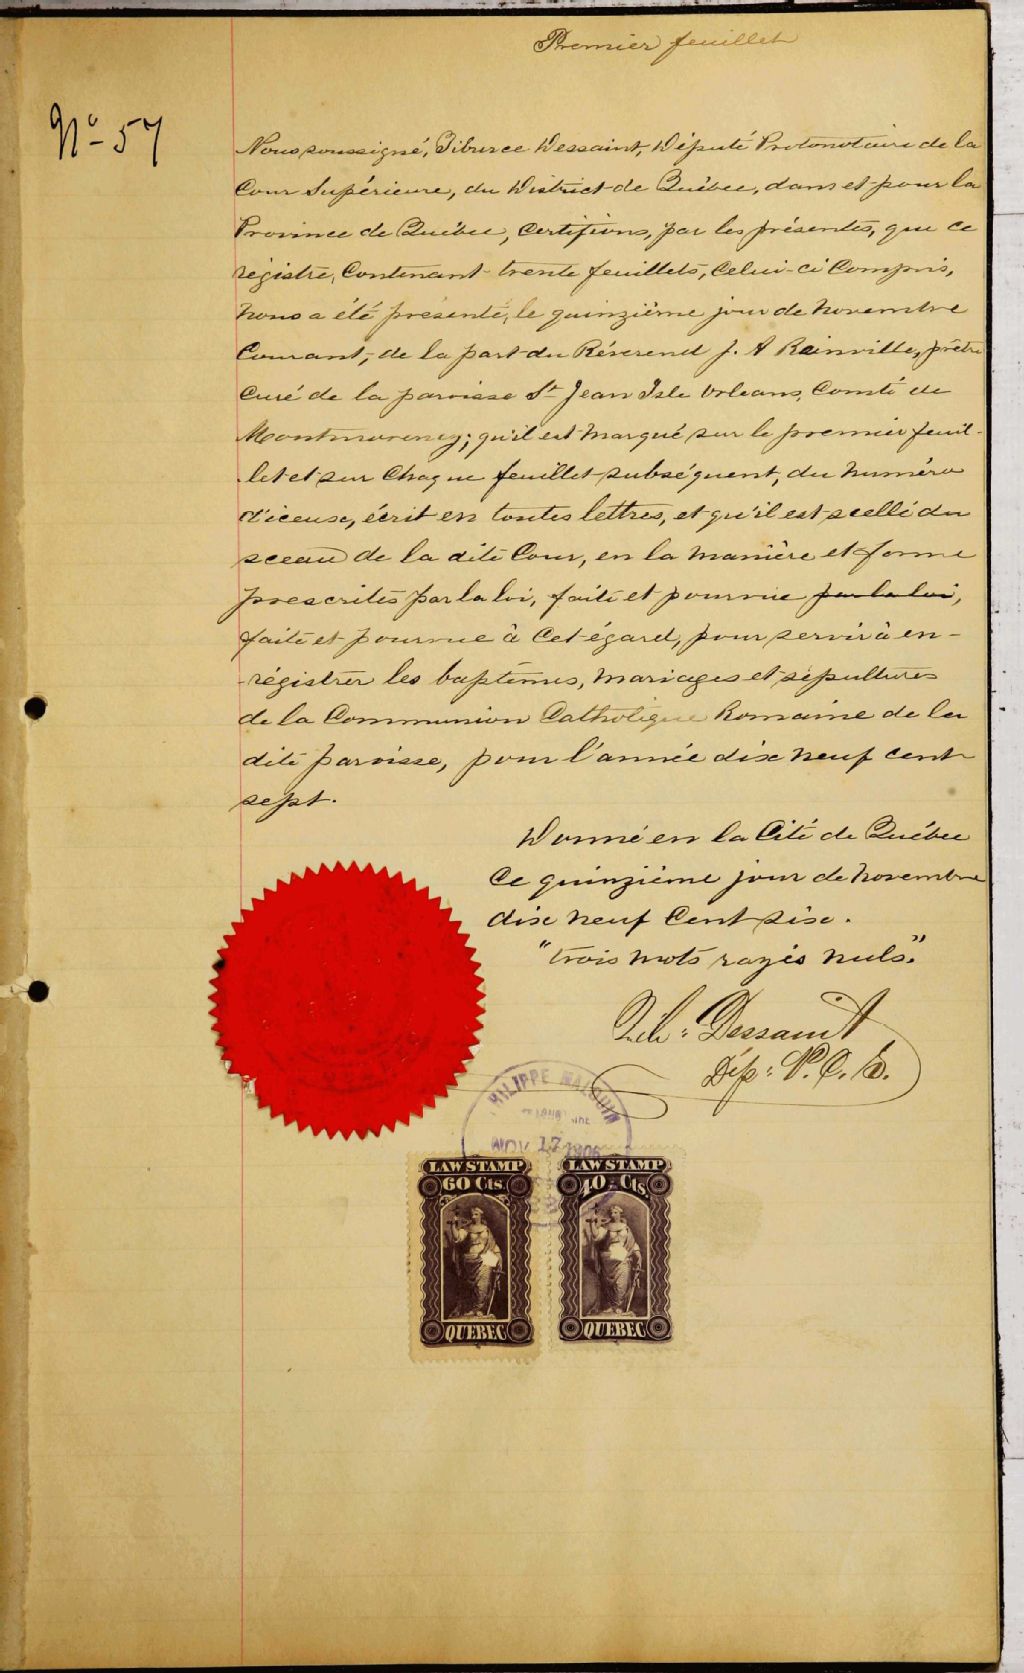 Premier feuillet
No 57
Nous soussigné, Tiburce Dessaint, Député Protonotaire de la
Cour Supérieure, du District de Québec, dans et pour la
Province de Québec, Certifions, par les présentes, que ce
régistre, Contenant trente feuillets, Celui-ci Compris,
nous a été présenté, le quinzième jour de Novembre
Courant, de la part du Révérend J. A Rainville, prêtre
Curé de la paroisse St Jean Isle Orleans, Comté de
Montmorency; qu'il est marqué sur le premier feuil-
let et sur Chaque feuillet subséquent, du numéro
d'iceux, écrit en toutes lettres, et qu'il est scellé du
sceau de la dite Cour, en la manière et forme
prescrites par la loi, faite et pourvue par la loi,
faite et pourvue à Cet égard, pour servir à en-
-régistrer les baptêmes, mariages et sépultures
de la Communion Catholique Romaine de la
dite paroisse, pour l'année dix neuf cent
sept.
Donné en la Cité de Québec
Ce quinzième jour de novembre
dix neuf Cent six.
"trois mots rayés nuls."
Tib. Dessaint
Dép. P. C. S.
PHILIPPE MALOUIN
NOV 17 1906
LAW STAMP
60 Cts.
QUEBEC
LAW STAMP
40 Cts.
QUEBEC